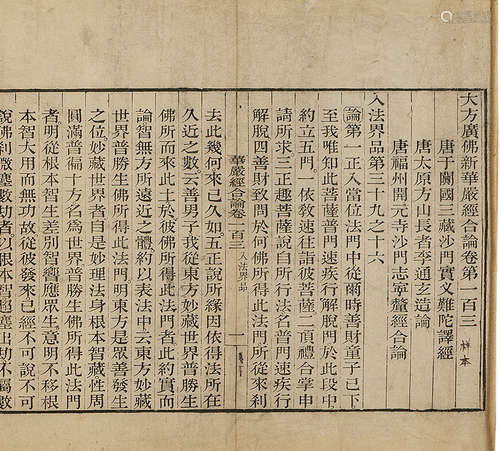 大方廣佛新華嚴經合論卷第一百三
样本
唐于闐國三藏沙門實叉難陀譯經
唐太原方山長者李通玄造論
唐福州開元寺沙門志寧釐經合論
入法界品第三十九之十六
論第一正入當位法門中從爾時善財童子已下
至我唯知此菩薩普門速疾行解脫門於此段中
約立五門一依教速往詣彼菩薩二頂禮合掌申
請所求三正趣菩薩說自所行法名普門速疾行
解脫四善財致問於何佛所得此法門所從來刹
華嚴經合論卷一百三 入法界品 一
去此幾何來已久如五正說所緣因依得法所在
久近之數云善男子我從東方妙藏世界普勝生
佛所而來此土於彼佛所得此法門者此約實而
論智無方所遠近之體約以表法中云東方妙藏
世界普勝生佛所得此法門明東方是眾善發生
之位妙藏世界者自是妙理法身根本智藏性周
圓滿普徧十方名為世界普勝生佛所得此法門
者明從根本智生差別智響應眾生意明不移根
本智大用而無功故從彼發來已經不可說不可
說佛刹微塵數劫者以根本智超塵出劫不屬數